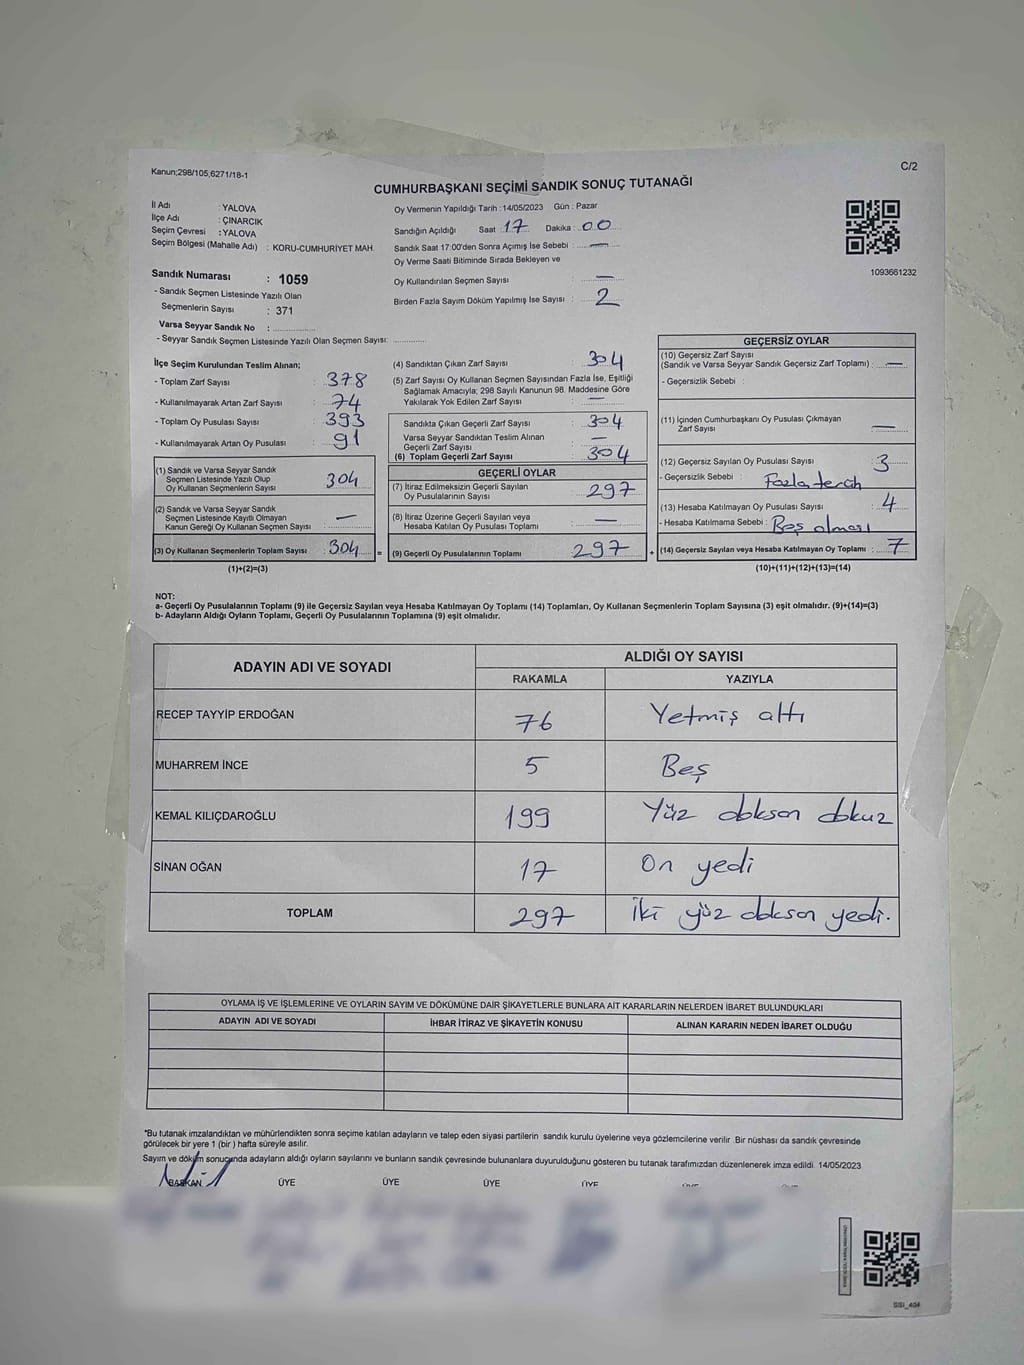 Kanun;298/105,6271/18-1
C/2
CUMHURBAŞKANI SEÇİMİ SANDIK SONUÇ TUTANAĞI
İl Adı : YALOVA
İlçe Adı : ÇINARCIK
Seçim Çevresi : YALOVA
Seçim Bölgesi (Mahalle Adı) : KORU-CUMHURIYET MAH.
Sandık Numarası : 1059
- Sandık Seçmen Listesinde Yazılı Olan
Seçmenlerin Sayısı : 371
Varsa Seyyar Sandık No :
- Seyyar Sandık Seçmen Listesinde Yazılı Olan Seçmen Sayısı:
Oy Vermenin Yapıldığı Tarih : 14/05/2023 Gün : Pazar
Sandığın Açıldığı Saat : 17 Dakika : 00
Sandık Saat 17:00'den Sonra Açımış İse Sebebi : —
Oy Verme Saati Bitiminde Sırada Bekleyen ve
Oy Kullandırılan Seçmen Sayısı —
Birden Fazla Sayım Döküm Yapılmış İse Sayısı : 2
1093661232
İlçe Seçim Kurulundan Teslim Alınan;
- Toplam Zarf Sayısı : 378
- Kullanılmayarak Artan Zarf Sayısı : 74
- Toplam Oy Pusulası Sayısı : 393
- Kullanılmayarak Artan Oy Pusulası : 91
(1) Sandık ve Varsa Seyyar Sandık
Seçmen Listesinde Yazılı Olup
Oy Kullanan Seçmenlerin Sayısı 304
(2) Sandık ve Varsa Seyyar Sandık
Seçmen Listesinde Kayıtlı Olmayan
Kanun Gereği Oy Kullanan Seçmen Sayısı : —
(3) Oy Kullanan Seçmenlerin Toplam Sayısı : 304 =
(1)+(2)=(3)
(4) Sandıktan Çıkan Zarf Sayısı : 304
(5) Zarf Sayısı Oy Kullanan Seçmen Sayısından Fazla İse, Eşitliği
Sağlamak Amacıyla; 298 Sayılı Kanunun 98. Maddesine Göre
Yakılarak Yok Edilen Zarf Sayısı : —
Sandıkta Çıkan Geçerli Zarf Sayısı : 304
Varsa Seyyar Sandıktan Teslim Alınan
Geçerli Zarf Sayısı : —
(6) Toplam Geçerli Zarf Sayısı : 304
GEÇERLİ OYLAR
(7) İtiraz Edilmeksizin Geçerli Sayılan
Oy Pusulalarının Sayısı : 297
(8) İtiraz Üzerine Geçerli Sayılan veya
Hesaba Katılan Oy Pusulası Toplamı : —
(9) Geçerli Oy Pusulalarının Toplamı : 297 +
GEÇERSİZ OYLAR
(10) Geçersiz Zarf Sayısı
(Sandık ve Varsa Seyyar Sandık Geçersiz Zarf Toplamı) : —
- Geçersizlik Sebebi :
(11) İçinden Cumhurbaşkanı Oy Pusulası Çıkmayan
Zarf Sayısı : —
(12) Geçersiz Sayılan Oy Pusulası Sayısı : 3
- Geçersizlik Sebebi : Fazla tercih
(13) Hesaba Katılmayan Oy Pusulası Sayısı : 4
- Hesaba Katılmama Sebebi : Boş olması
(14) Geçersiz Sayılan veya Hesaba Katılmayan Oy Toplamı : 7
(10)+(11)+(12)+(13)=(14)
NOT:
a- Geçerli Oy Pusulalarının Toplamı (9) ile Geçersiz Sayılan veya Hesaba Katılmayan Oy Toplamı (14) Toplamları, Oy Kullanan Seçmenlerin Toplam Sayısına (3) eşit olmalıdır. (9)+(14)=(3)
b- Adayların Aldığı Oyların Toplamı, Geçerli Oy Pusulalarının Toplamına (9) eşit olmalıdır.
ADAYIN ADI VE SOYADI ALDIĞI OY SAYISI
RAKAMLA YAZIYLA
RECEP TAYYİP ERDOĞAN 76 Yetmiş altı
MUHARREM İNCE 5 Beş
KEMAL KILIÇDAROĞLU 199 Yüz doksan dokuz
SİNAN OĞAN 17 On yedi
TOPLAM 297 İki yüz doksan yedi.
OYLAMA İŞ VE İŞLEMLERİNE VE OYLARIN SAYIM VE DÖKÜMÜNE DAİR ŞİKAYETLERLE BUNLARA AİT KARARLARIN NELERDEN İBARET BULUNDUKLARI
ADAYIN ADI VE SOYADI İHBAR İTİRAZ VE ŞİKAYETİN KONUSU ALINAN KARARIN NEDEN İBARET OLDUĞU
*Bu tutanak imzalandıktan ve mühürlendikten sonra seçime katılan adayların ve talep eden siyasi partilerin sandık kurulu üyelerine veya gözlemcilerine verilir .Bir nüshası da sandık çevresinde
görülecek bir yere 1 (bir ) hafta süreyle asılır.
Sayım ve döküm sonucunda adayların aldığı oyların sayılarını ve bunların sandık çevresinde bulunanlara duyurulduğunu gösteren bu tutanak tarafımızdan düzenlenerek imza edildi. 14/05/2023
BAŞKAN ÜYE ÜYE ÜYE ÜYE
SSI_404